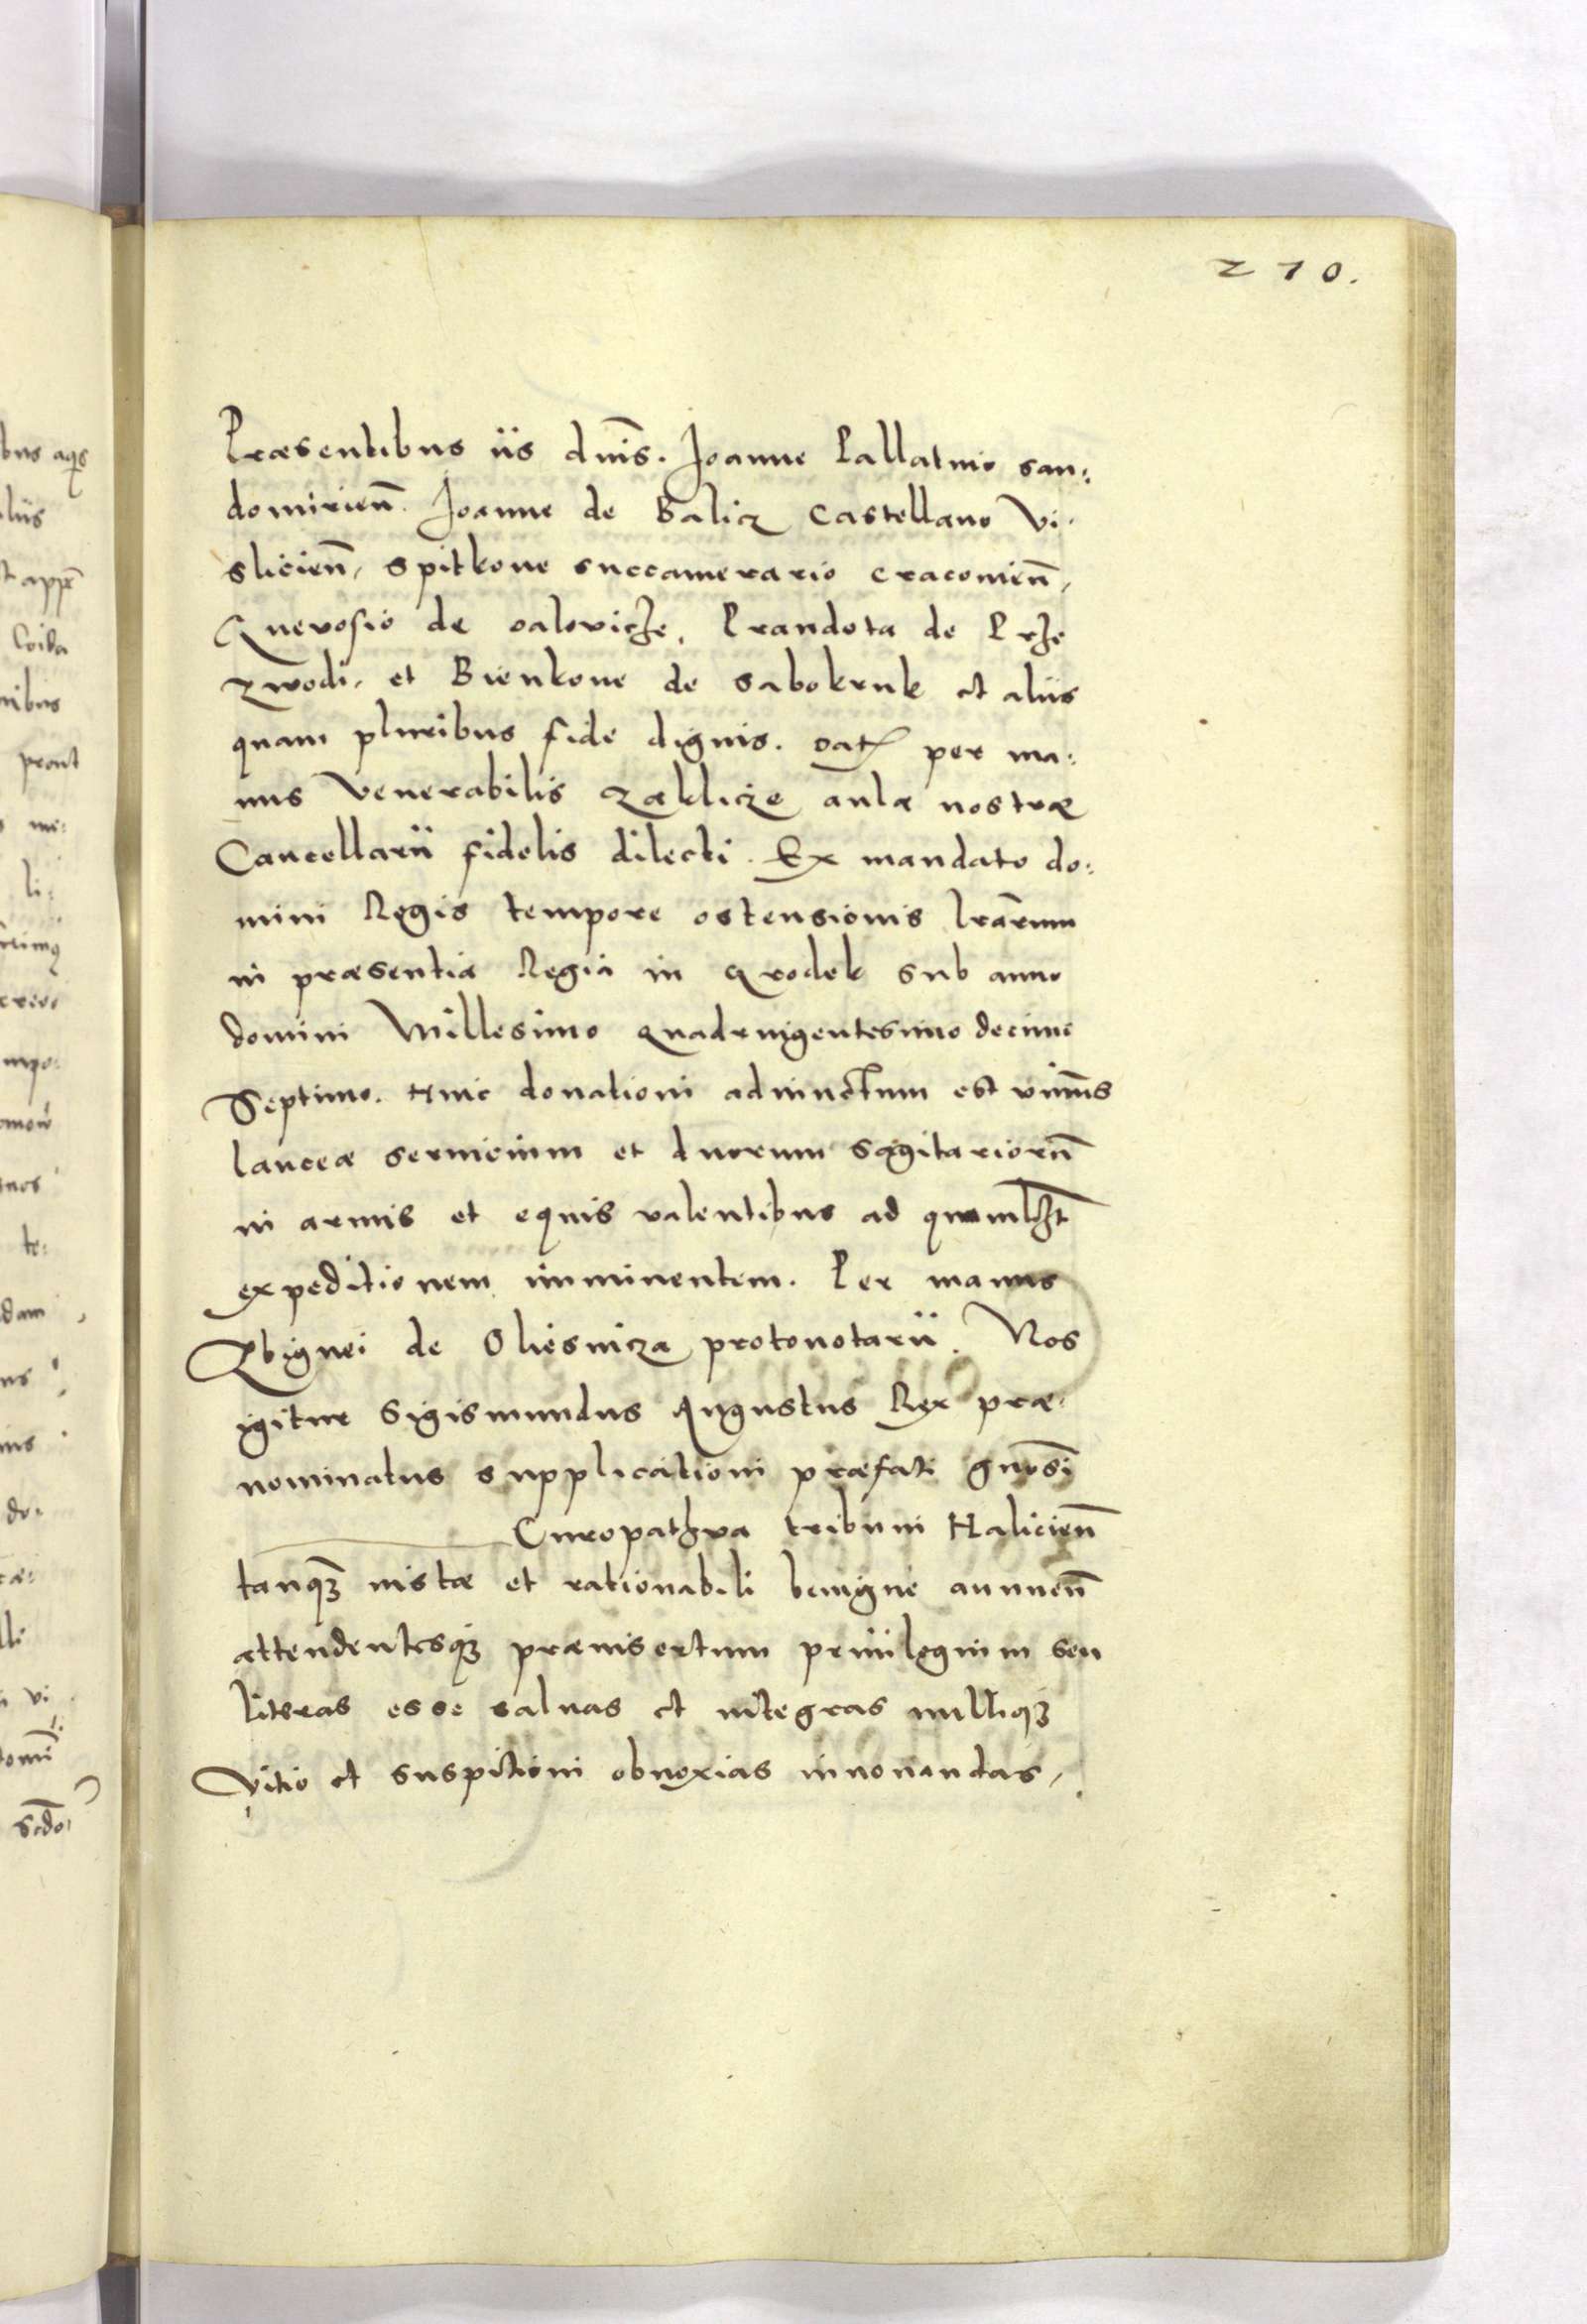 210.
Præsentibus iis dnis. Joanne Pallatino san:
domirien. Joanne de Balicz Castellano Vi-
slicien, Spitkone succamerario cracouien,
Gnevosio de Dalovicze, Prandota de Prze
zwodi, et Bienkone de Sabokruk et aliis
quam pluribus fide dignis. Dat per ma:
nus Venerabilis Zaklicze aulæ nostræ
Cancellarii fidelis dilecti. Ex mandato do:
mini Regis tempore ostensionis lrarum
in præsentia Regia in Grodek sub anno
domini Millesimo quadringentesimo decimo
Septimo. Huic donationi adiunctum est vnius
lanceæ seruicium et duorum sagitariorum
in armis et equis valentibus ad quamlzt
expeditionem imminentem. Per manus
Zbignei de Oliesnicza protonotarii. Nos
igitur Sigismundus Augustus Rex præ-
nominatus supplicationi præfati gnosi
Curopathva tribuni Halicien
tanq3 iustæ et rationabili benigne annuen
attendentesq3 præinsertum priuilegium seu
literas esse saluas et integras nulliq3
Vitio et suspitioni obnoxias innouandas,